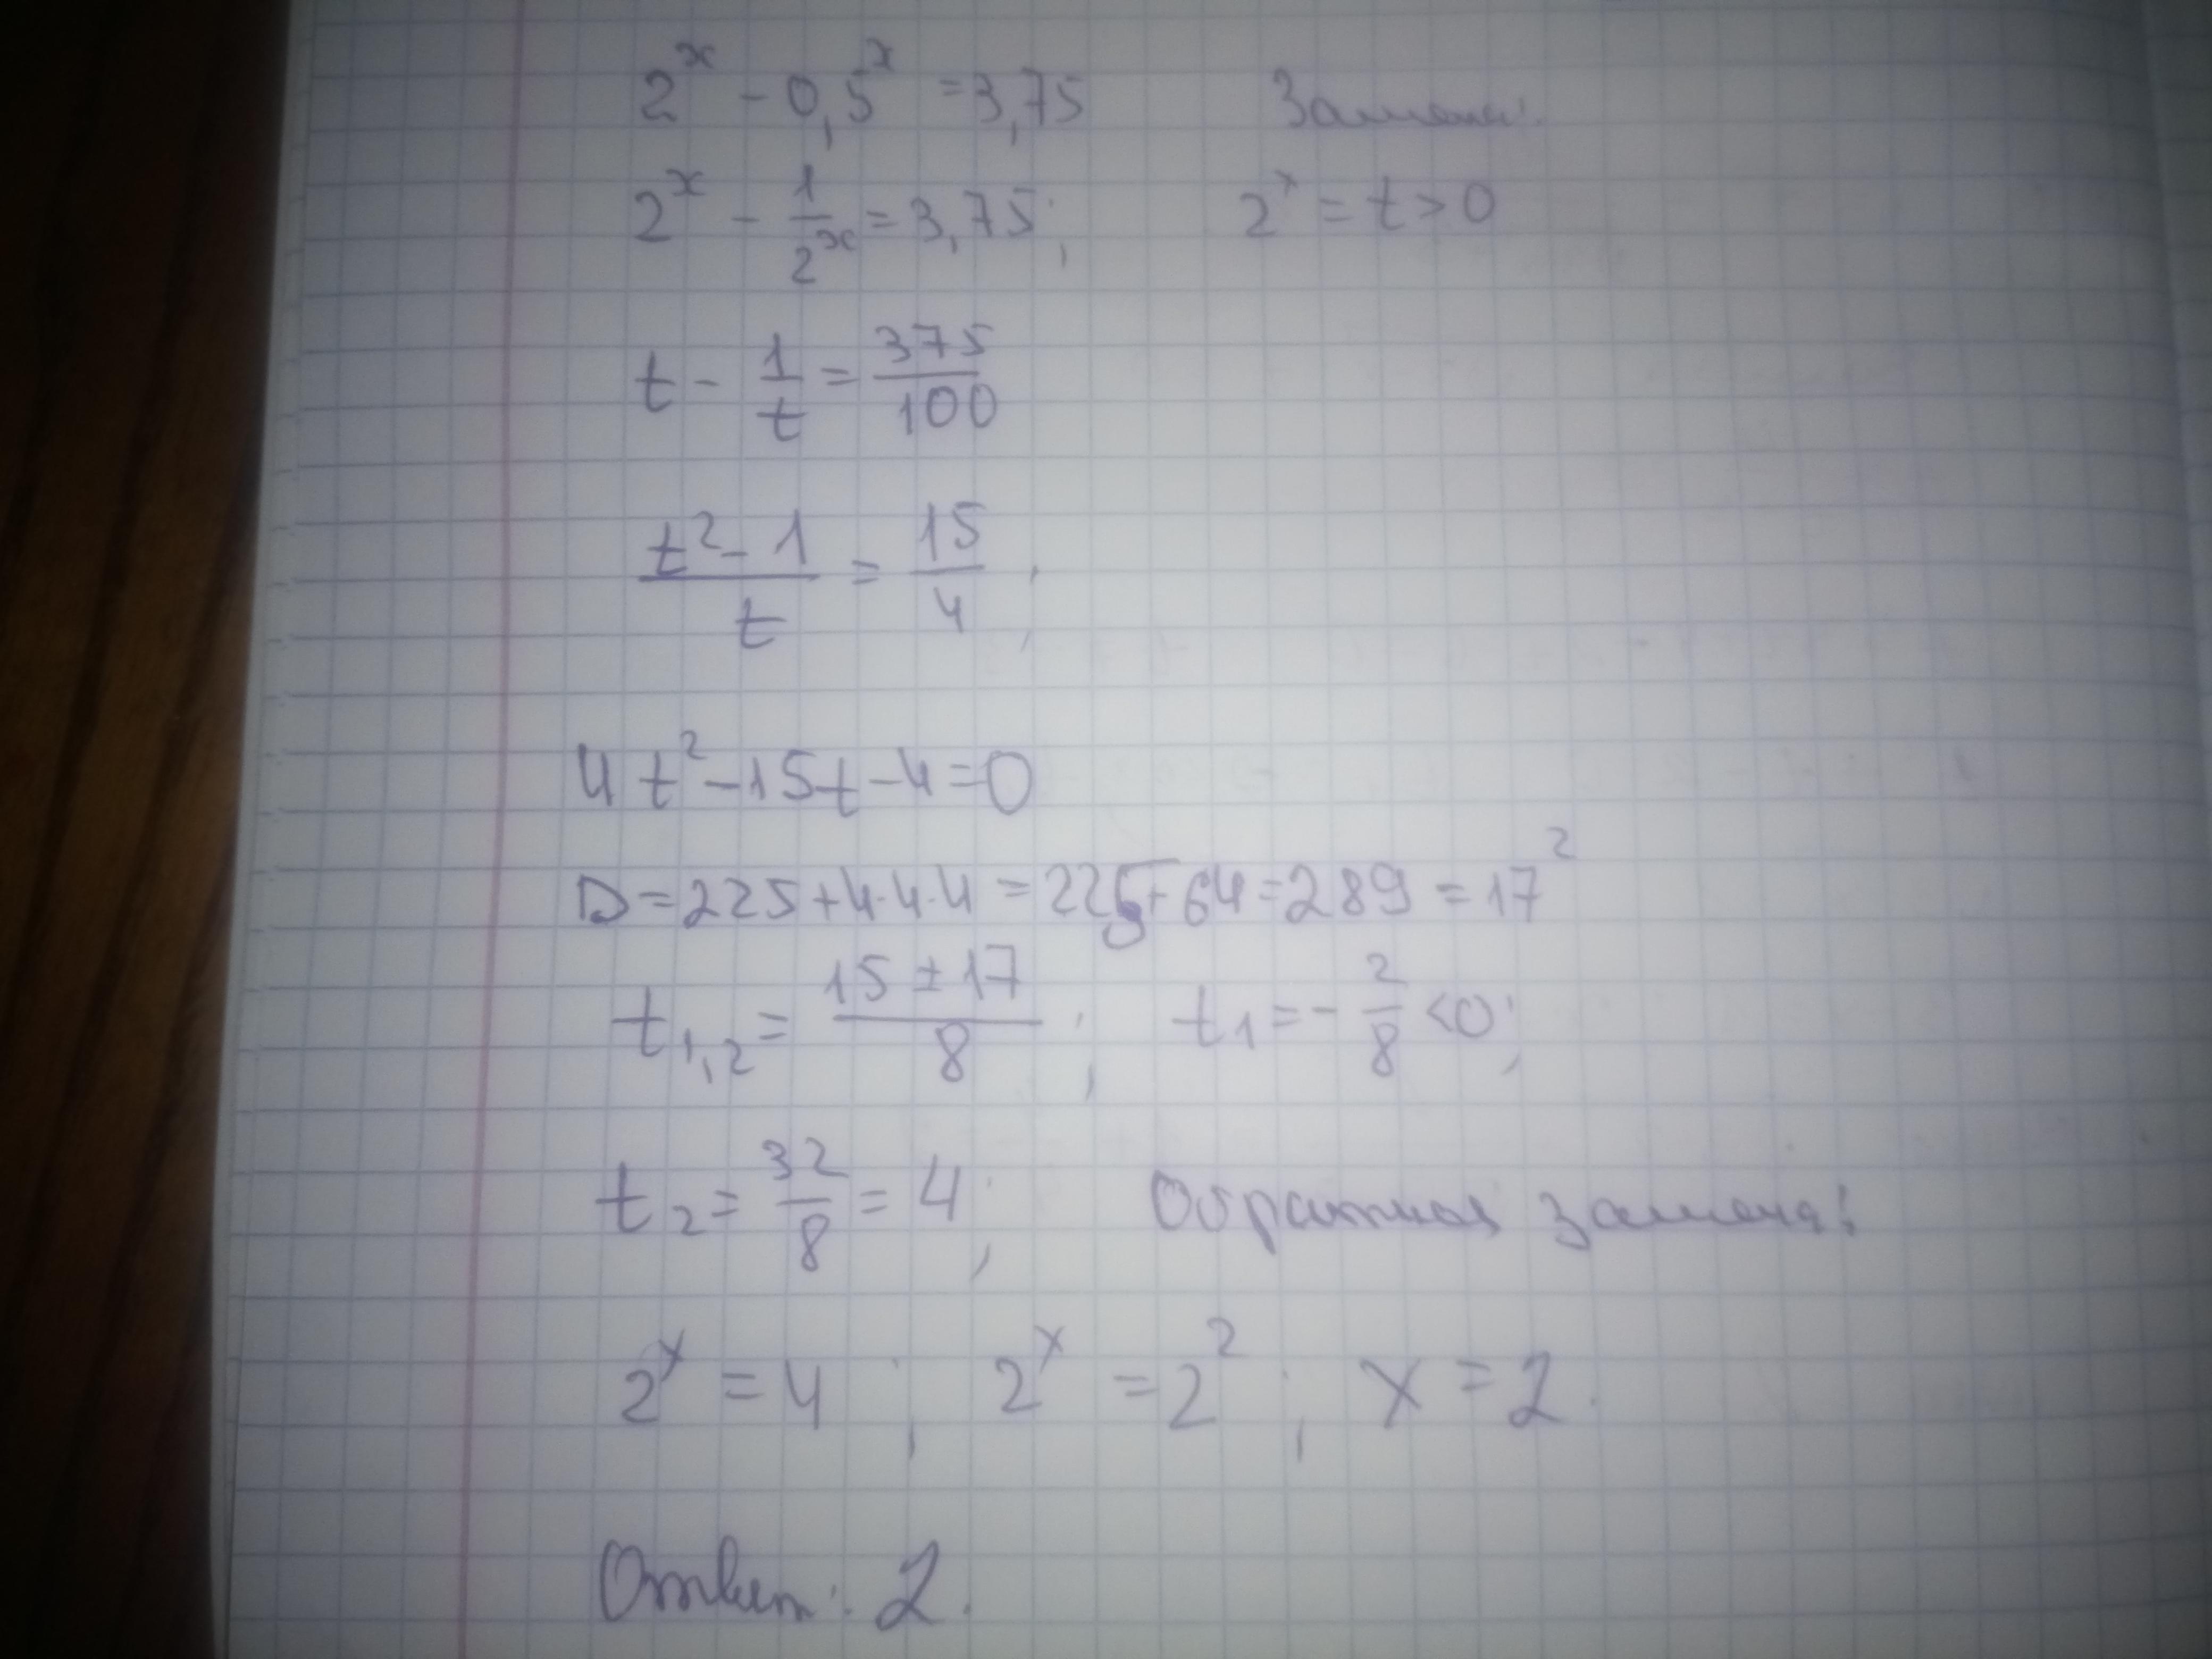 2^x - 0,5^x = 3,75 Замена:
2^x - 1/2^x = 3,75; 2^x = t > 0
t - 1/t = 375/100
(t² - 1)/t = 15/4;
4t² - 15t - 4 = 0
D = 225 + 4·4·4 = 225 + 64 = 289 = 17²
t₁,₂ = (15 ± 17)/8; t₁ = - 2/8 < 0;
t₂ = 32/8 = 4; Обратная замена:
2^x = 4; 2^x = 2²; x = 2.
Ответ: 2.